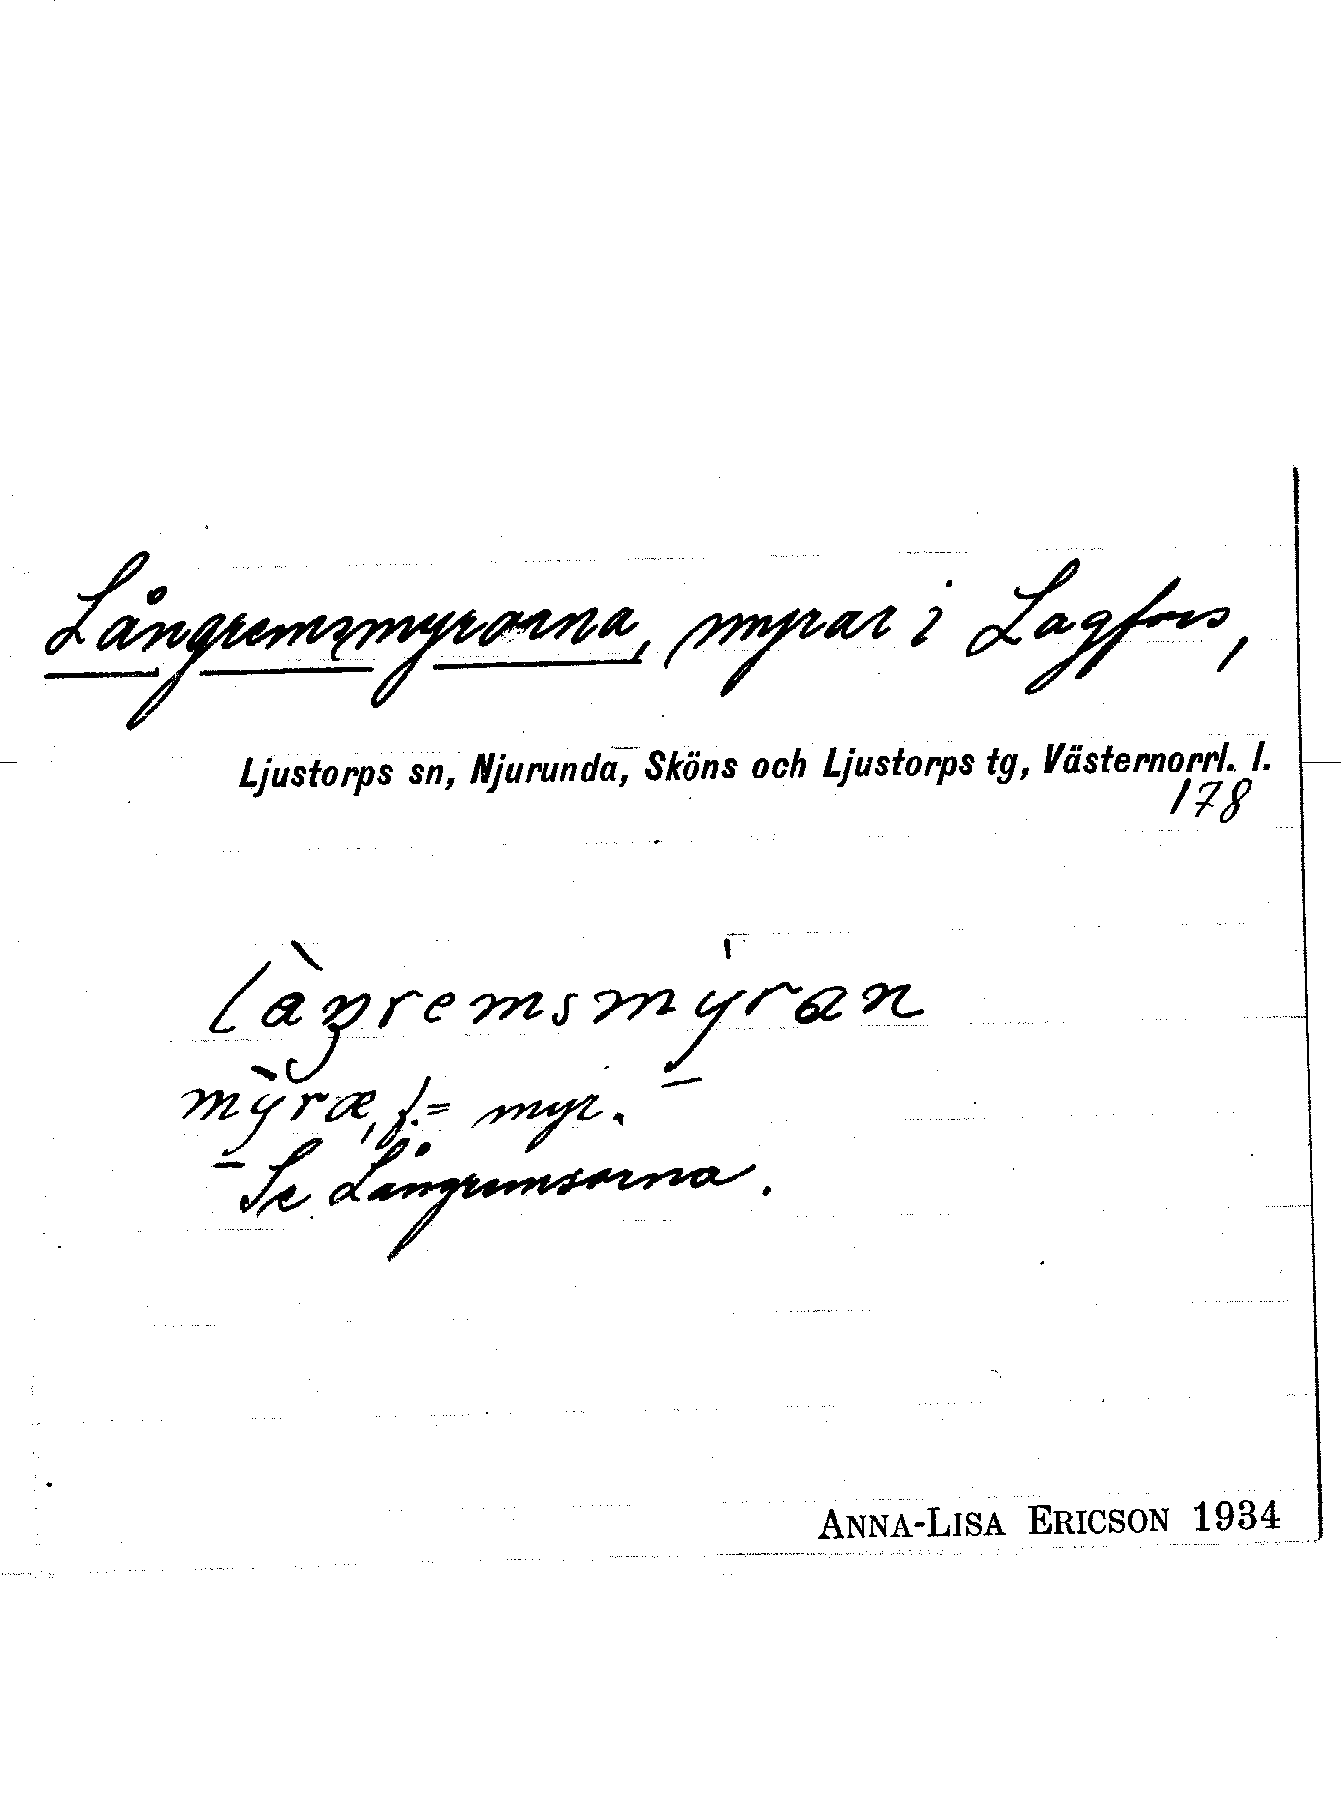 Långremsmyrorna, myrar i Lagfors,
Ljustorps sn, Njurunda, Sköns och Ljustorps tg, Västernorrl. l.
178
làŋremsmy̠ran
mỳ̠ræ, f. = myr.
Se Långremsorna.
ANNA-LISA ERICSON 1934